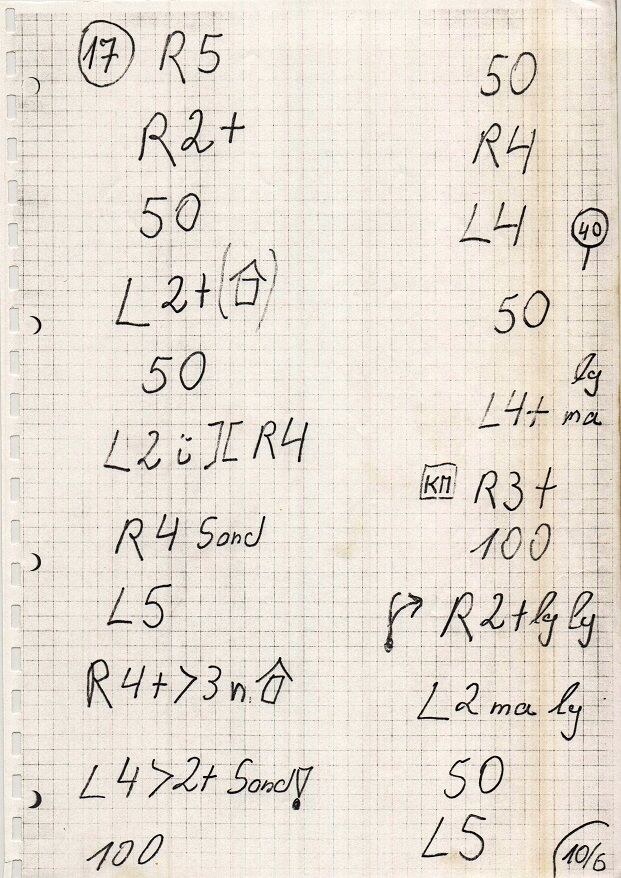 17 R5
R2+
50
L2+(⌂)
50
L2 i ][ R4
R4 Sond
L5
R4+>3 n.⌂
L4>2+ Sond!
100
50
R4
L4 40
50
lg
L4+ ma
KM R3+
100
R2+ lg lg
L2 ma lg
50
L5
10/6